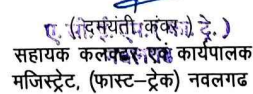 (दमयंती कंवर)
सहायक कलक्टर एवं कार्यपालक
मजिस्ट्रेट, (फास्ट-ट्रेक) नवलगढ